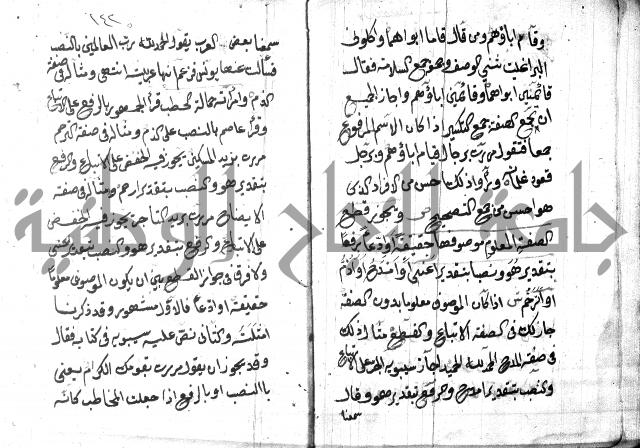 وقام اباؤهم ومن قال قاما ابواهما واكلوني
البراغيث ثنى الوصف وجمعه جمع السلامة فقال
قائمين ابواهما وقائمين اباؤهم واجاز الجميع
ان تجمع الصفة جمع التكسير اذا كان الاسم المرفوع
جمعا فتقول مررت برجال قيام اباؤهم وبرجل
قعود غلمانه وراوا ذلك احسن من الافراد الذي
هو احسن من جمع التصحيح ص ويجوز قطع
الصفة المعلوم موصوفها حقيقة او ادعاء رفعا
بتقدير هو ونصبا بتقدير اعني او امدح او اذم
او ارحم ش اذا كان الموصوف معلوما بدون الصفة
جاز لك في الصفة الاتباع والقطع مثال ذلك
في صفة المدح الحمد لله الحميد اجاز سيبويه الجر على الاتباع
والنصب بتقدير امدح والرفع بتقدير هو وقال
سمعنا
١٤٢
سمعنا بعض العرب يقول الحمد لله رب العالمين بالنصب
فسألت عنها يونس فزعم انها عربية انتهى ومثاله في صفة
الذم وامرأته حمالة الحطب قرأ الجمهور بالرفع على الاتباع
وقرأ عاصم بالنصب على الذم ومثاله في صفة الترحم
مررت بزيد المسكين يجوز فيه الخفض على الاتباع والرفع
بتقدير هو والنصب بتقدير ارحم ومثاله في صفة
الايضاح مررت بزيد التاجر يجوز فيه الخفض
على الاتباع والرفع بتقدير هو والنصب بتقدير اعني
ولا فرق في جواز القطع بين ان يكون الموصوف معلوما
حقيقة او ادعاء فالاول مشهور وقد ذكرنا
امثلته والثاني نص عليه سيبويه في كتابه فقال
وقد يجوز ان يقول مررت بقومك الكرام يعني
بالنصب او بالرفع اذا جعلت المخاطب كانه
جامعة النجاح الوطنية